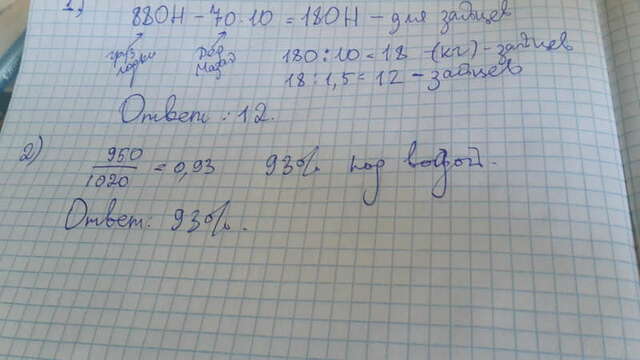 1)
880Н - 70·10 = 180Н - для зайцев
груз лодки
Дед Мазай
180 : 10 = 18 (кг) - зайцев
18 : 1,5 = 12 - зайцев
Ответ: 12.
2)
950/1020 = 0,93 93% под водой.
Ответ: 93%.